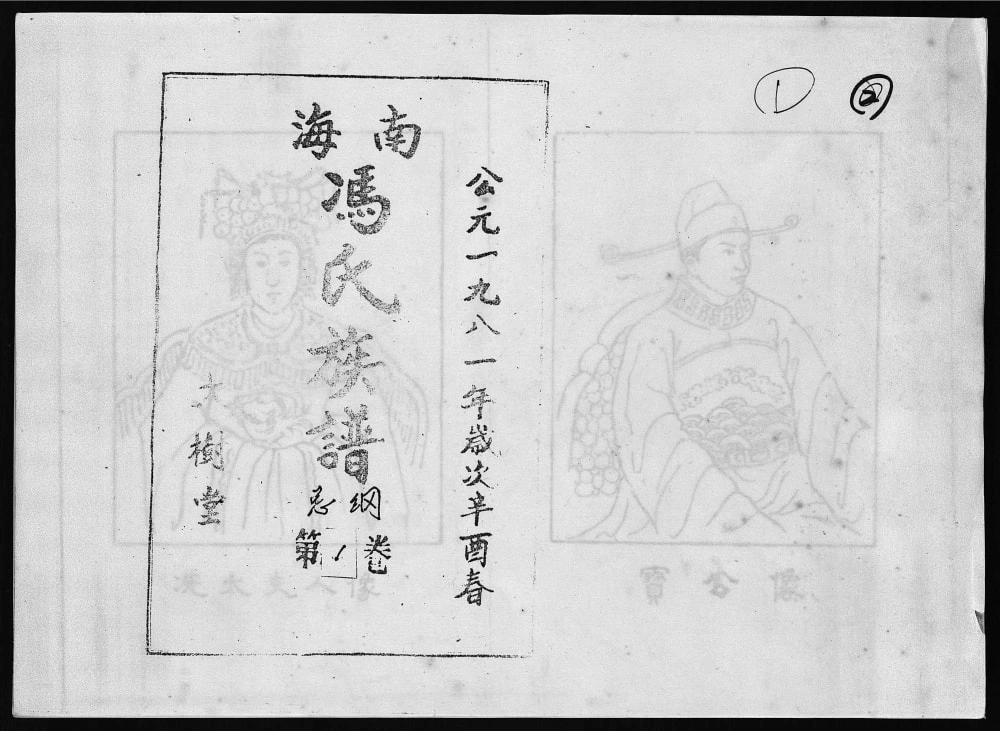 ①
公元一九八一年歲次辛酉春
海南
馮氏族譜
总纲
第1卷
大樹堂
寶公像
冼太夫人像